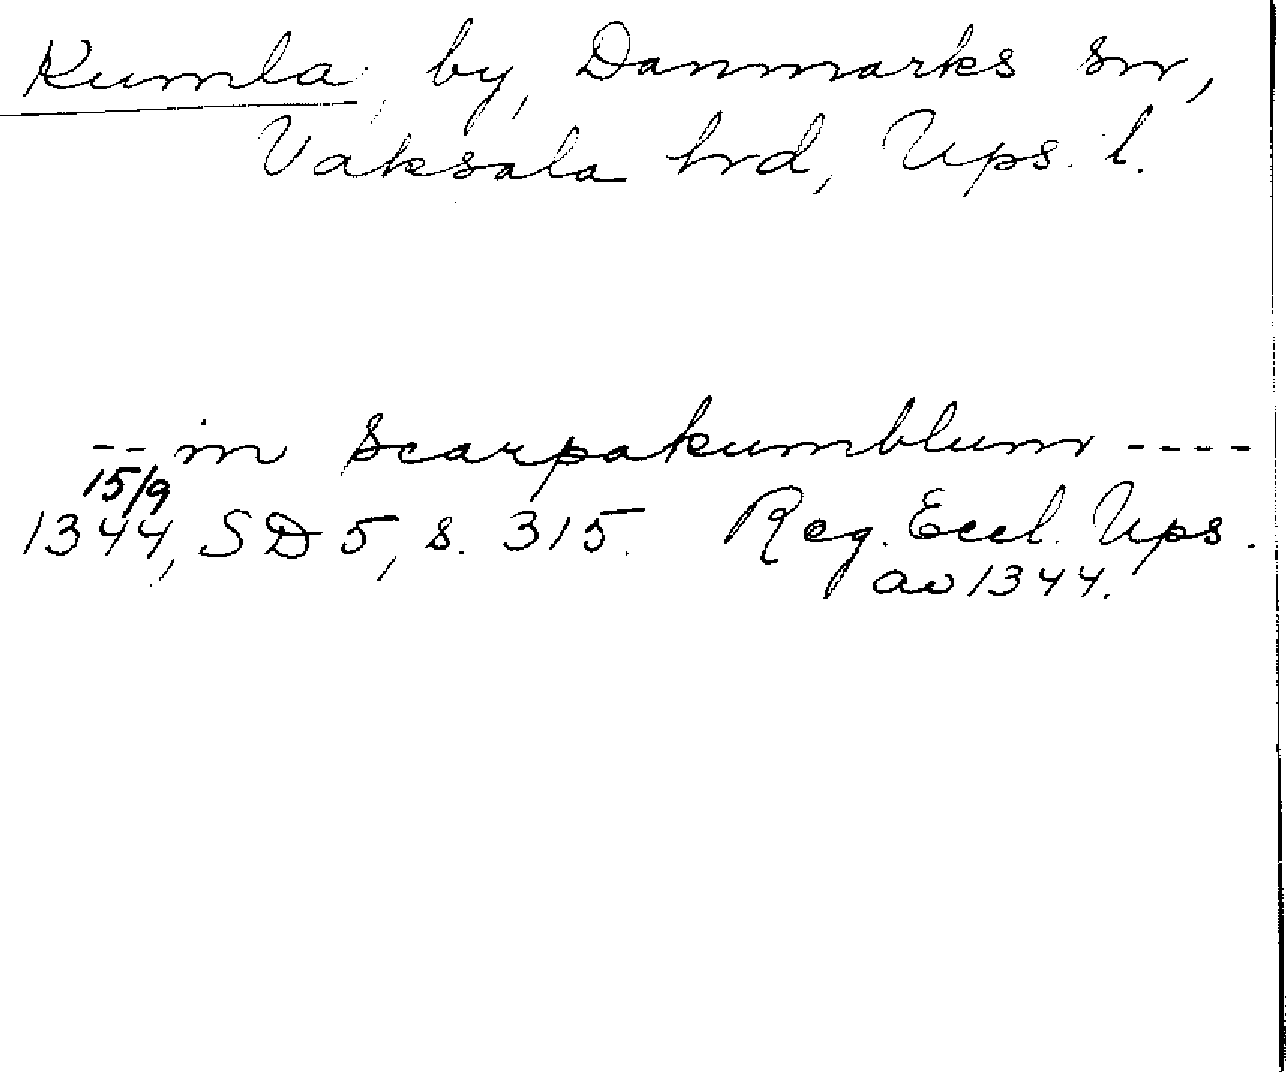 Kumla, by, Danmarks sn,
Vaksala hrd, Ups. l.
-- in Scarpakumblum ----
15/9
1344, SD 5, s. 315. Reg. Eccl. Ups.
av 1344.